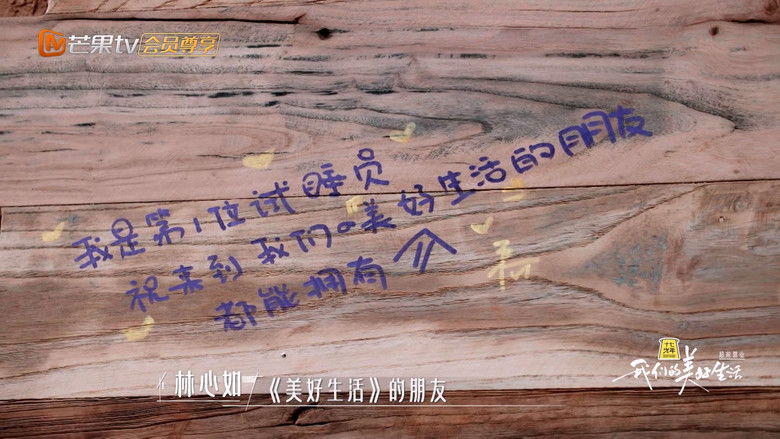 芒果tv 会员尊享
我是第1位试睡员
祝来到我们の美好生活的朋友
都能拥有
林心如 《美好生活》的朋友
我们的美好生活